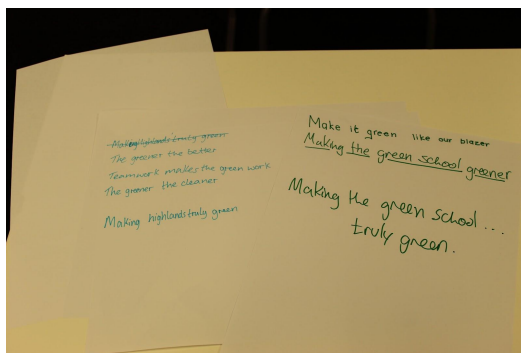 Making highlands truly green
The greener the better
Teamwork makes the green work
The greener the cleaner
Making highlands truly green
Make it green like our blazer
Making the green school greener
Making the green school...
truly green.